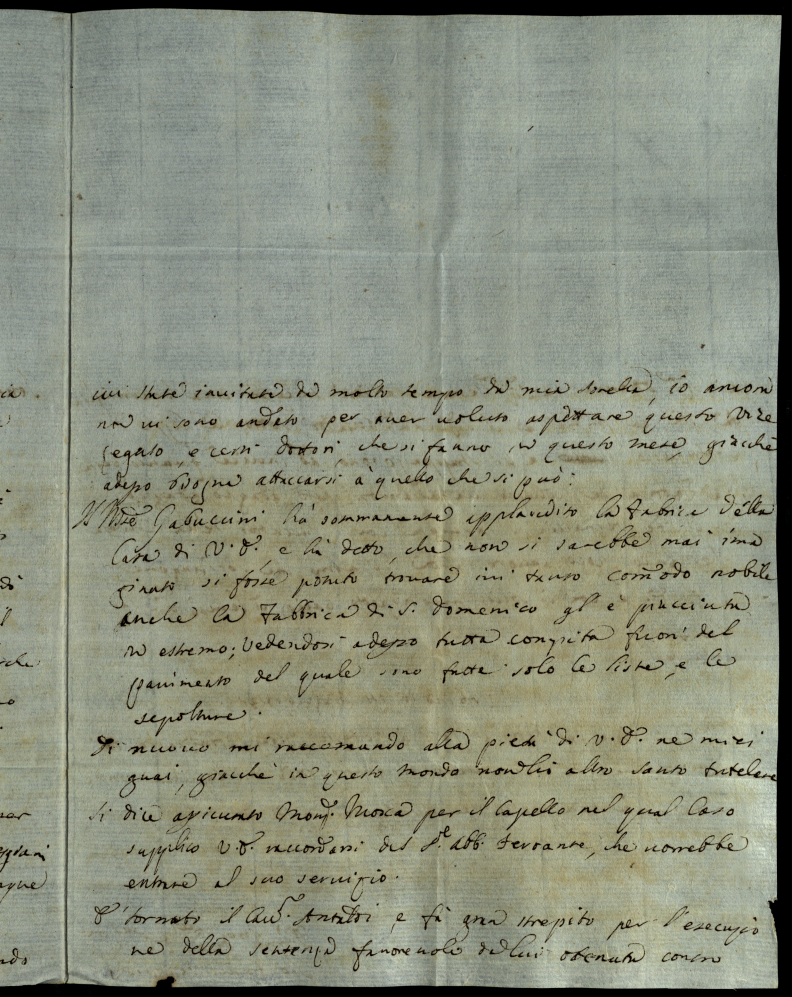 ivi state invitate da molto tempo da mia sorella, io ancora
non vi sono andato per aver voluto aspettare questo Vice
Legato, e certi dottori, che si fanno in questo mese, giacchè
adesso bisogna attaccarsi à quello che si può:
Il Gabuccini hà sommamente applaudito la Fabrica della
Casa di V. E., e hà detto, che non si sarebbe mai ima
ginato si fosse potuto trovare ivi tanto com̃odo nobile
anche la Fabbrica di S. Domenico gl' è piacciuta
in estremo; vedendosi adesso tutta compita fuori del
pavimento del quale sono fatte solo le liste, e le
sepolture.
Di nuovo mi raccomando alla pietà di V. E. ne miei
guai, giacchè in questo mondo non hò altro santo tutelare
Si dice apicciato Mons. Mosca per il Capello nel qual Caso
supplico V. E. raccordarsi del S.r Abb. Feroante, che vorrebbe
entrare al suo servizio.
E' tornato il Cav. Antaldi, e fà gran strepito per l'esecuzio
ne della sentenza favorevole da lui ottenuta contro